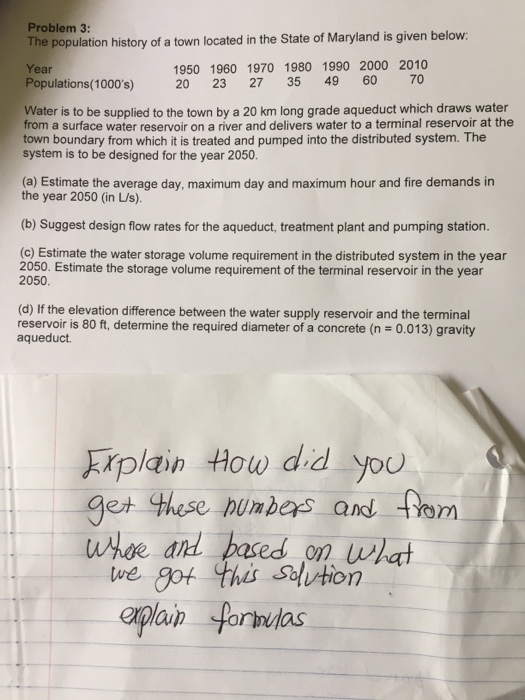 Problem 3:
The population history of a town located in the State of Maryland is given below:
Year 1950 1960 1970 1980 1990 2000 2010
Populations(1000's) 20 23 27 35 49 60 70
Water is to be supplied to the town by a 20 km long grade aqueduct which draws water
from a surface water reservoir on a river and delivers water to a terminal reservoir at the
town boundary from which it is treated and pumped into the distributed system. The
system is to be designed for the year 2050.
(a) Estimate the average day, maximum day and maximum hour and fire demands in
the year 2050 (in L/s).
(b) Suggest design flow rates for the aqueduct, treatment plant and pumping station.
(c) Estimate the water storage volume requirement in the distributed system in the year
2050. Estimate the storage volume requirement of the terminal reservoir in the year
2050.
(d) If the elevation difference between the water supply reservoir and the terminal
reservoir is 80 ft, determine the required diameter of a concrete (n = 0.013) gravity
aqueduct.
Explain How did you
get these numbers and from
where and based on what
we got this solution
explain formulas